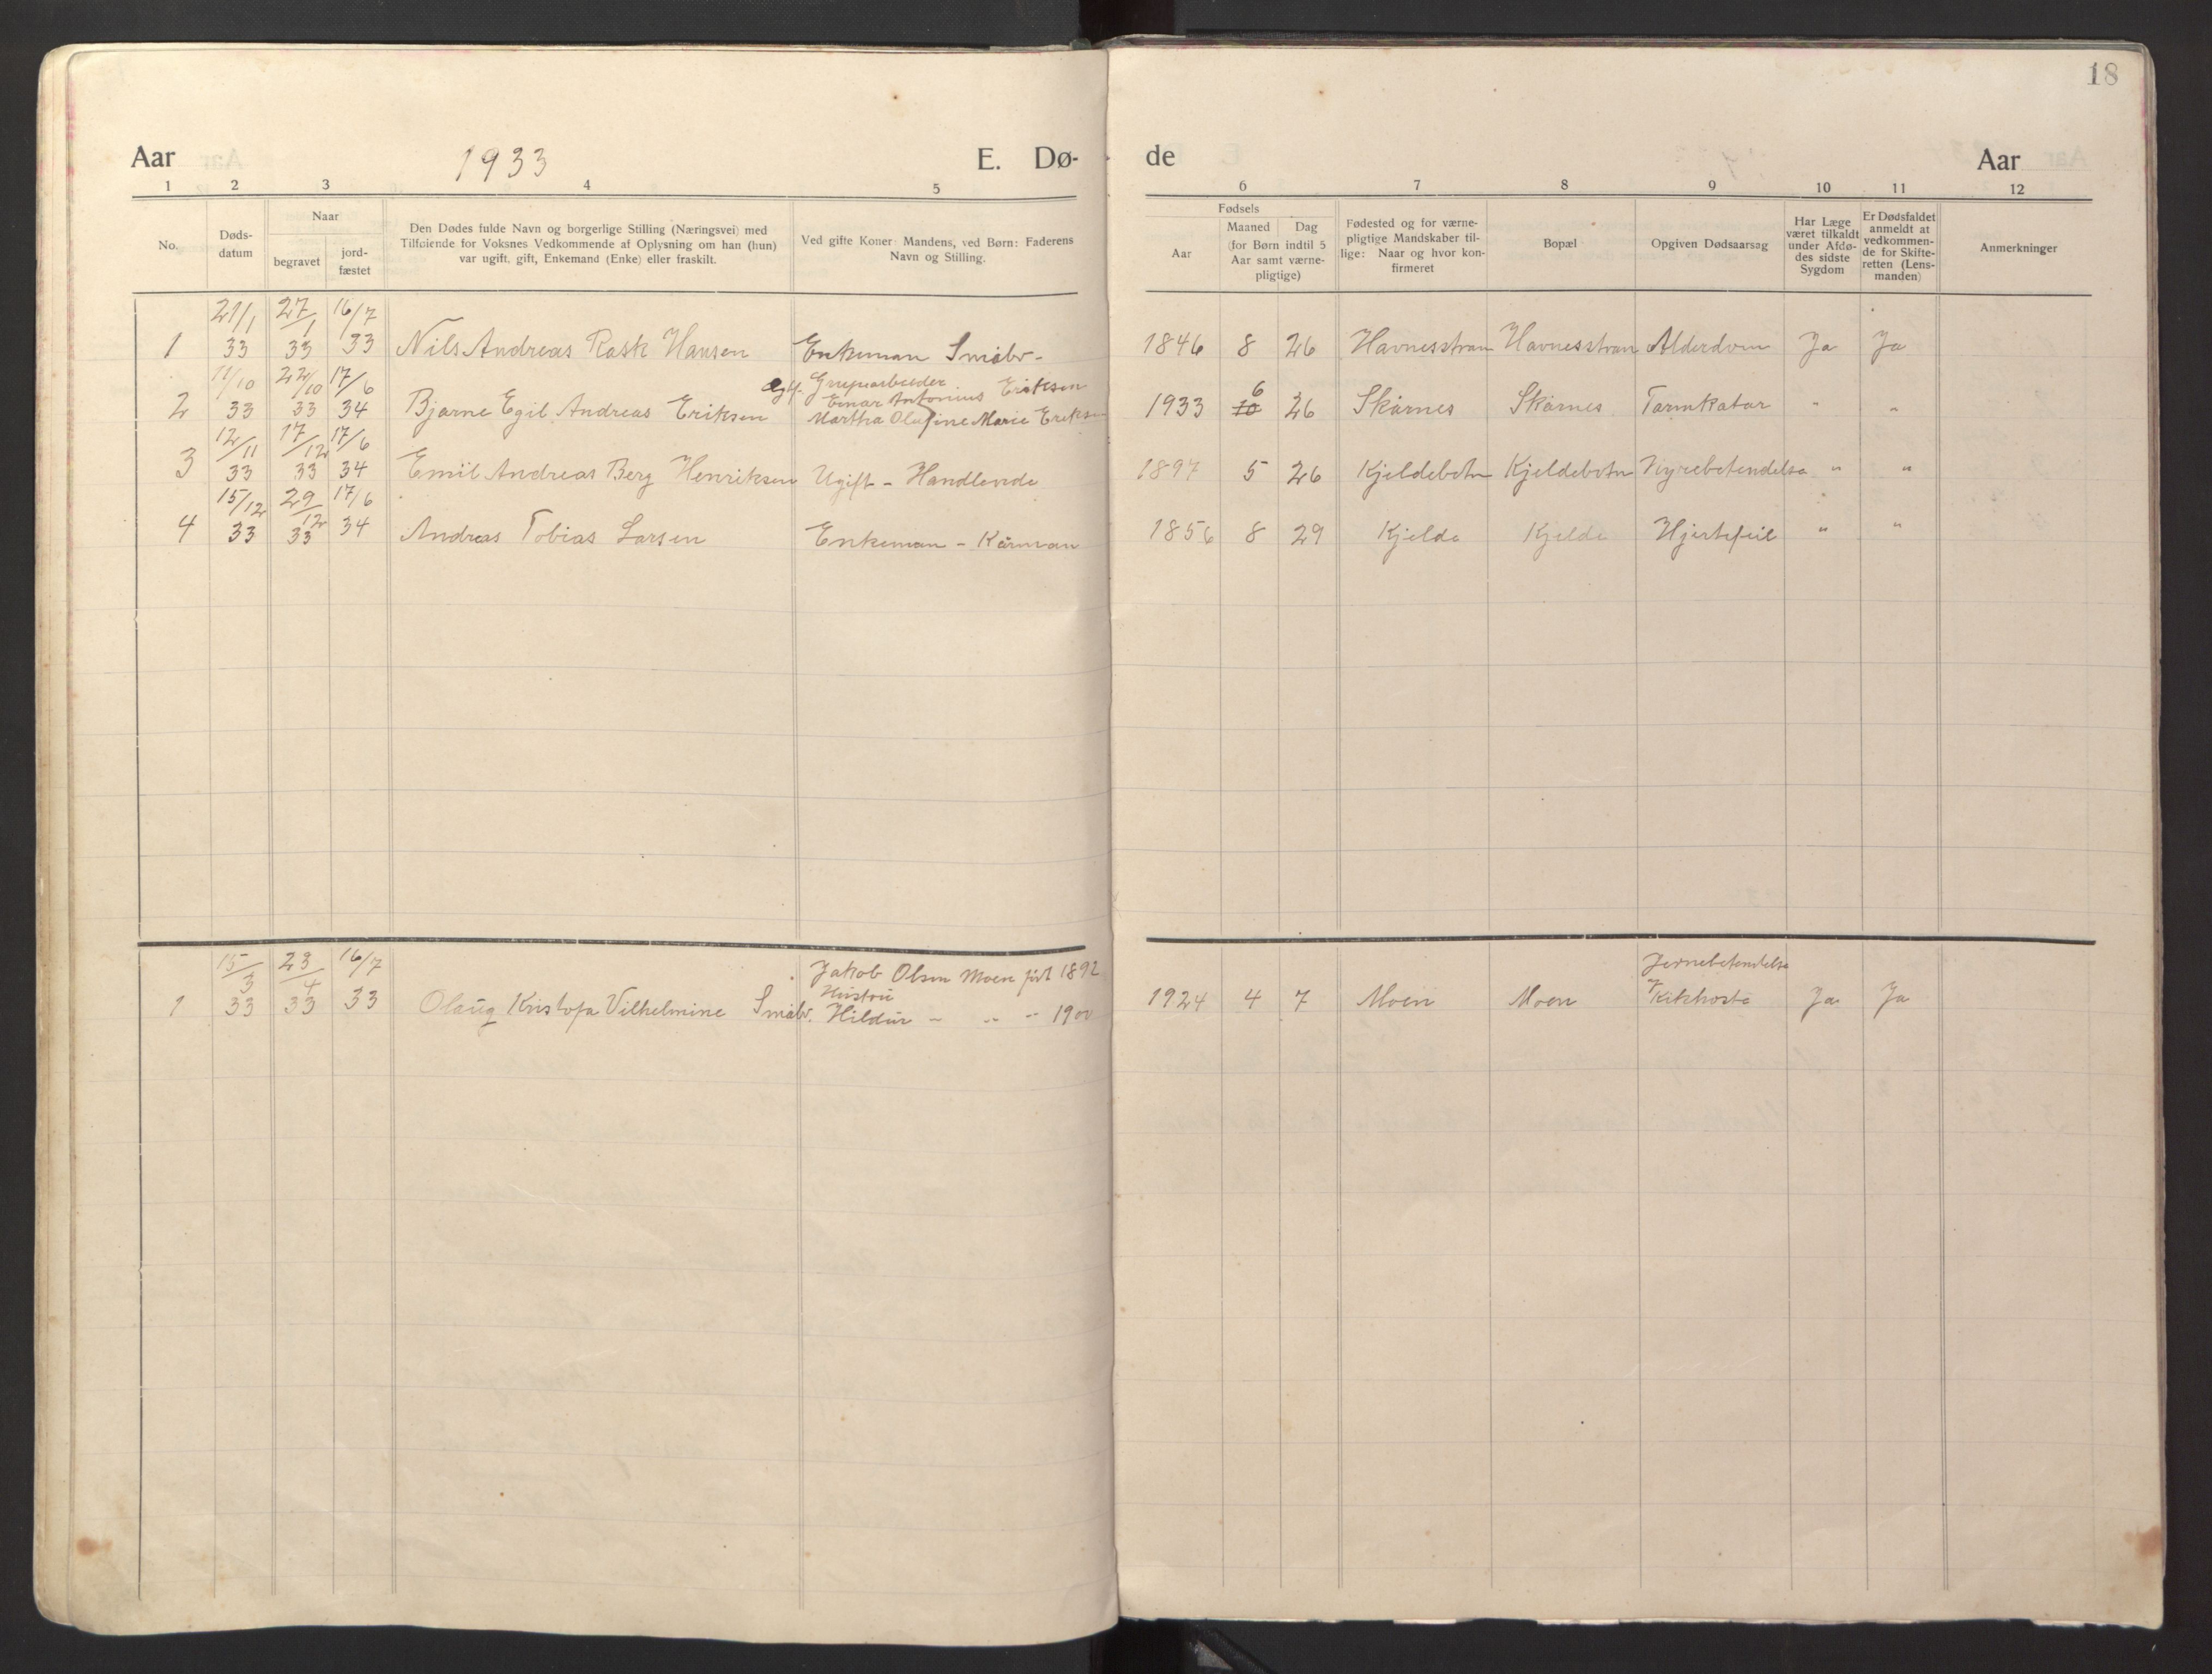 18
Aar 1933 E. Dø- de Aar
1 2 3 4 5 6 7 8 9 10 11 12
No.
Døds-
datum
Naar
begravet
jord-
fæstet
Den Dødes fulde Navn og borgerlige Stilling (Næringsvei) med
Tilføiende for Voksnes Vedkommende af Oplysning om han (hun)
var ugift, gift, Enkemand (Enke) eller fraskilt.
Ved gifte Koner: Mandens, ved Børn: Faderens
Navn og Stilling.
Fødsels
Aar
Maaned Dag
(for Børn indtil 5
Aar samt værne-
pligtige)
Fødested og for værne-
pligtige Mandskaber til-
lige: Naar og hvor kon-
firmeret
Bopæl
Opgiven Dødsaarsag
Har Læge
været tilkaldt
under Afdø-
des sidste
Sygdom
Er Dødsfaldet
anmeldt at
vedkommen-
de for Skifte-
retten (Lens-
manden)
Anmerkninger
21/1 27/1 16/7
1 33 33 33 Nils Andreas Rask Hansen Enkeman Småbr- 1846 8 26 Havnesstran Havnesstran Alderdom Ja Ja
11/10 22/10 17/6 Grupearbeider 6
Einar Antonius Eriksen
2 33 33 34 Bjarne Egil Andreas Eriksen Martha Olufine Marie Eriksen 1933 10 26 Skarnes Skarnes Tarmkatar " "
12/11 17/12 17/6
3 33 33 34 Emil Andreas Berg Henriksen Ugift - Handlende 1897 5 26 Kjeldebotn Kjeldebotn Nyrebetendelse " "
15/12 29/12 17/6
4 33 33 34 Andreas Tobias Larsen Enkeman - Kårman 1856 8 29 Kjelde Kjelde Hjertefeil " "
15/3 23/4 16/7 Jakob Olsen Moen født 1892
Hustru
1 33 33 33 Olaug Kristofa Vilhelmine Småbr. Hildur - " " 1900 1924 4 7 Moen Moen Kikhoste Ja Ja